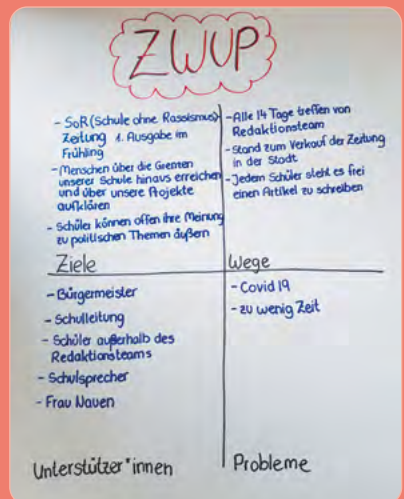 ZWUP
- SoR (Schule ohne Rassismus)
Zeitung 1. Ausgabe im
Frühling
- Menschen über die Grenzen
unserer Schule hinaus erreichen
und über unsere Projekte
aufklären
- Schüler können offen ihre Meinung
zu politischen Themen äußern
Ziele
- Alle 14 Tage treffen von
Redaktionsteam
- Stand zum Verkauf der Zeitung
in der Stadt
- Jedem Schüler steht es frei
einen Artikel zu schreiben
Wege
- Bürgermeister
- Schulleitung
- Schüler außerhalb des
Redaktionsteams
- Schulsprecher
- Frau Nauen
Unterstützer*innen
- Covid 19
- zu wenig Zeit
Probleme